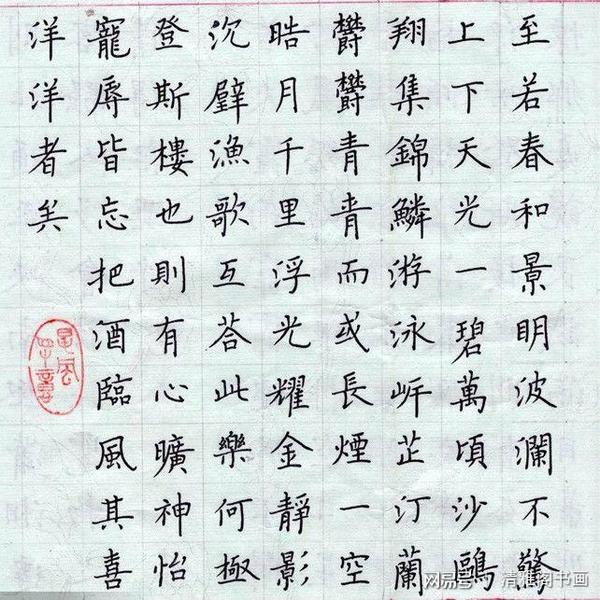 至若春和景明波瀾不驚
上下天光一碧萬頃沙鷗
翔集錦鱗游泳岍芷汀蘭
欝欝青青而或長煙一空
晧月千里浮光耀金靜影
沉璧漁歌互荅此樂何極
登斯樓也則有心曠神怡
寵辱皆忘把酒臨風其喜
洋洋者矣
网易号 清雅阁书画